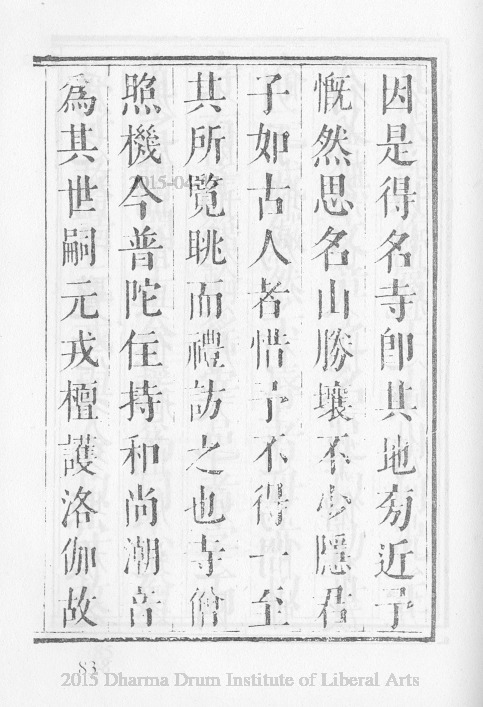 因是得名寺即其地旁近予
慨然思名山勝壤不少隱君
子如古人者惜予不得一至
其所覽眺而禮訪之也寺僧
照機今普陀住持和尚潮音
為其世嗣元戎檀護洛伽故
83
2015 Dharma Drum Institute of Liberal Arts